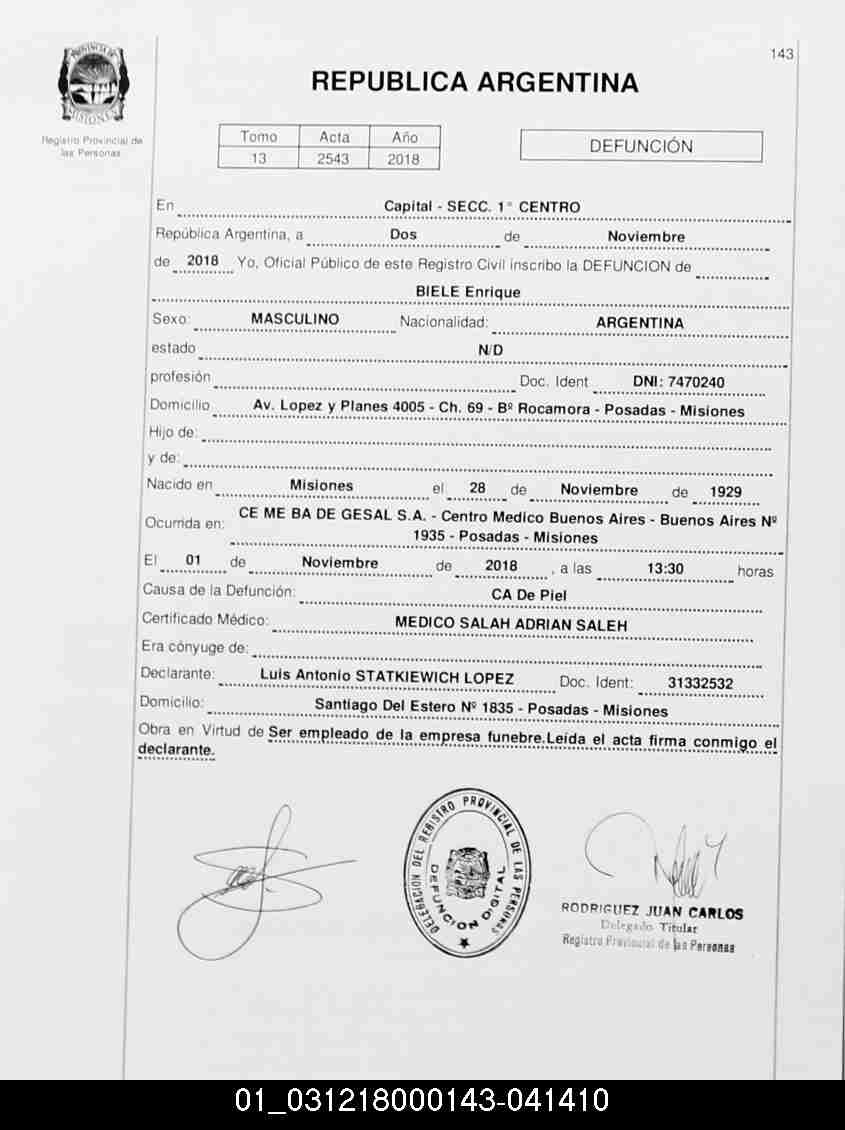 143
PROVINCIA DE
MISIONES
Registro Provincial de
las Personas
REPUBLICA ARGENTINA
Tomo Acta Año
13 2543 2018
DEFUNCIÓN
En Capital - SECC. 1° CENTRO
República Argentina, a Dos de Noviembre
de 2018 Yo, Oficial Público de este Registro Civil inscribo la DEFUNCION de
BIELE Enrique
Sexo: MASCULINO Nacionalidad: ARGENTINA
estado N/D
profesión Doc. Ident DNI: 7470240
Domicilio Av. Lopez y Planes 4005 - Ch. 69 - Bº Rocamora - Posadas - Misiones
Hijo de:
y de:
Nacido en Misiones el 28 de Noviembre de 1929
Ocurrida en: CE ME BA DE GESAL S.A. - Centro Medico Buenos Aires - Buenos Aires Nº
1935 - Posadas - Misiones
El 01 de Noviembre de 2018 , a las 13:30 horas
Causa de la Defunción: CA De Piel
Certificado Médico: MEDICO SALAH ADRIAN SALEH
Era cónyuge de:
Declarante: Luis Antonio STATKIEWICH LOPEZ Doc. Ident: 31332532
Domicilio: Santiago Del Estero Nº 1835 - Posadas - Misiones
Obra en Virtud de Ser empleado de la empresa funebre.Leída el acta firma conmigo el
declarante.
DELEGACION DEL REGISTRO PROVINCIAL DE LAS PERSONAS
DEFUNCION DIGITAL
RODRIGUEZ JUAN CARLOS
Delegado Titular
Registro Provincial de las Personas
01_031218000143-041410